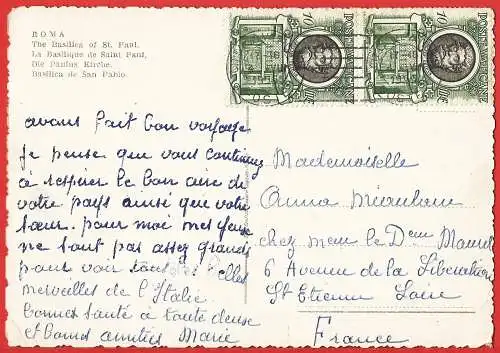 ROMA
The Basilica of St. Paul.
La Basilique de Saint Paul.
Die Paulus Kirche.
Basílica de San Pablo.
POSTE VATICANE
POSTE VATICANE
avons fait bon voyage
je pense que vous continuez
à respirer le bon air de
votre pays ainsi que votre
sœur. pour moi mes yeux
ne sont pas assez grands
pour voir tous
merveilles de l'Italie
bonnes santé à toute deuse
et bonnes amitiés Marie
Mademoiselle
Anna
chez le
6 Avenue de la Libération
St Etienne Loire
France